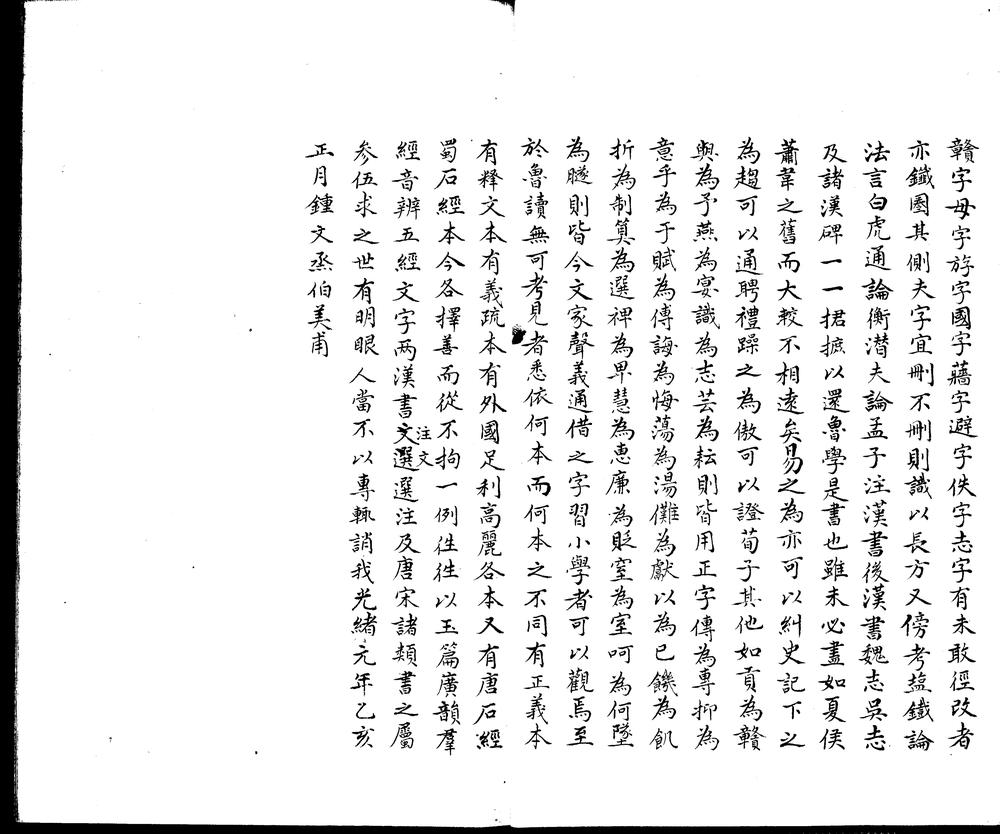 贛字母字斿字國字藷字避字佚字志字有未敢徑改者
亦鐵圈其側夫字宜刪不刪則識以長方又傍考盐鐵論
法言白虎通論衡潛夫論孟子注漢書後漢書魏志吳志
及諸漢碑一一捃摭以還魯學是書也雖未必盡如夏侯
蕭韋之舊而大較不相遠矣易之為亦可以糾史記下之
為趨可以通聘禮躁之為傲可以證荀子其他如貢為贛
與為予燕為宴識為志芸為耘則皆用正字傳為專抑為
意乎為于賦為傅誨為悔蕩為湯儺為獻以為已饑為飢
折為制算為選裨為卑慧為惠廉為貶窒為室呵為何墜
為隧則皆今文家聲義通借之字習小學者可以觀焉至
於魯讀無可考見者悉依何本而何本之不同有正義本
有釋文本有義疏本有外國足利高麗各本又有唐石經
蜀石經本今各擇善而從不拘一例往往以玉篇廣韻羣
經音辨五經文字两漢書注文文選選注及唐宋諸類書之屬
參伍求之世有明眼人當不以專輒誚我光緒元年乙亥
正月鍾文烝伯美甫